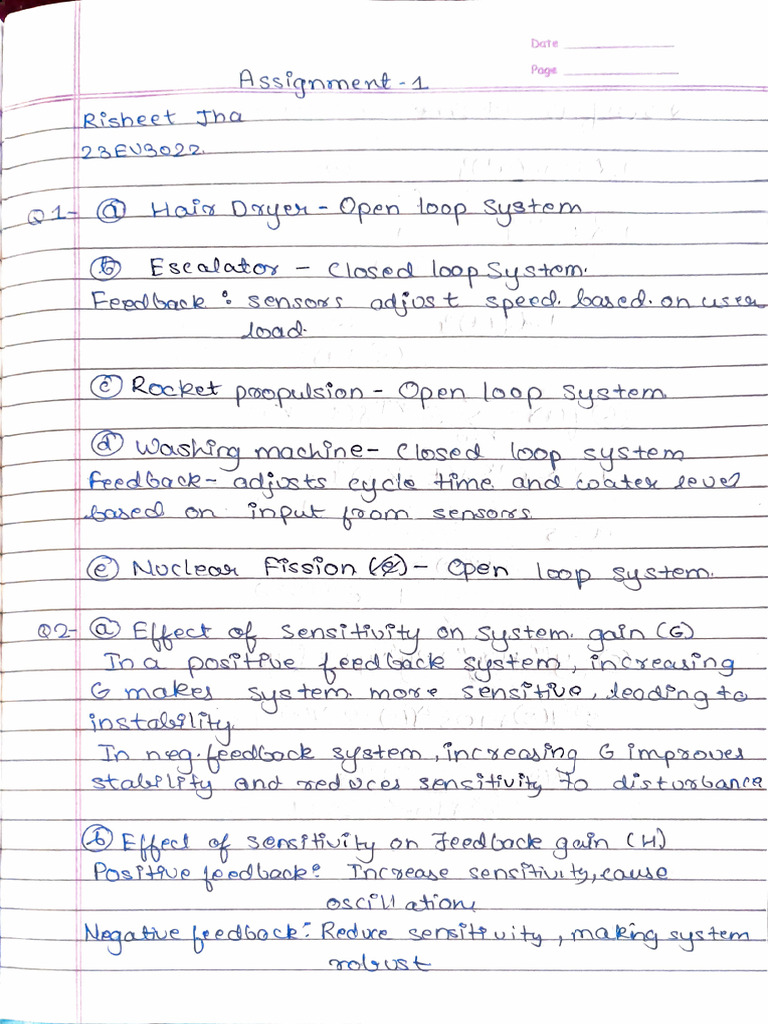 Date
Page
Assignment - 1
Risheet Jha
23EV3022.
Q1- ⓐ Hair Dryer - Open loop system
ⓑ Escalator - Closed loop System.
Feedback : sensors adjust speed. based. on user
load.
ⓒ Rocket propulsion - Open loop system
ⓓ Washing machine - Closed loop system
Feedback - adjusts cycle time and water level
based on input from sensors
ⓔ Nuclear Fission - Open loop system.
Q2- ⓐ Effect of sensitivity on system. gain (G)
In a positive feedback system, increasing
G makes system more sensitive, leading to
instability.
In neg. feedback system, increasing G improves
stability and reduces sensitivity to disturbance
ⓑ Effect of sensitivity on feedback gain (H)
Positive feedback: Increase sensitivity, cause
oscillation,
Negative feedback: Reduce sensitivity, making system
robust